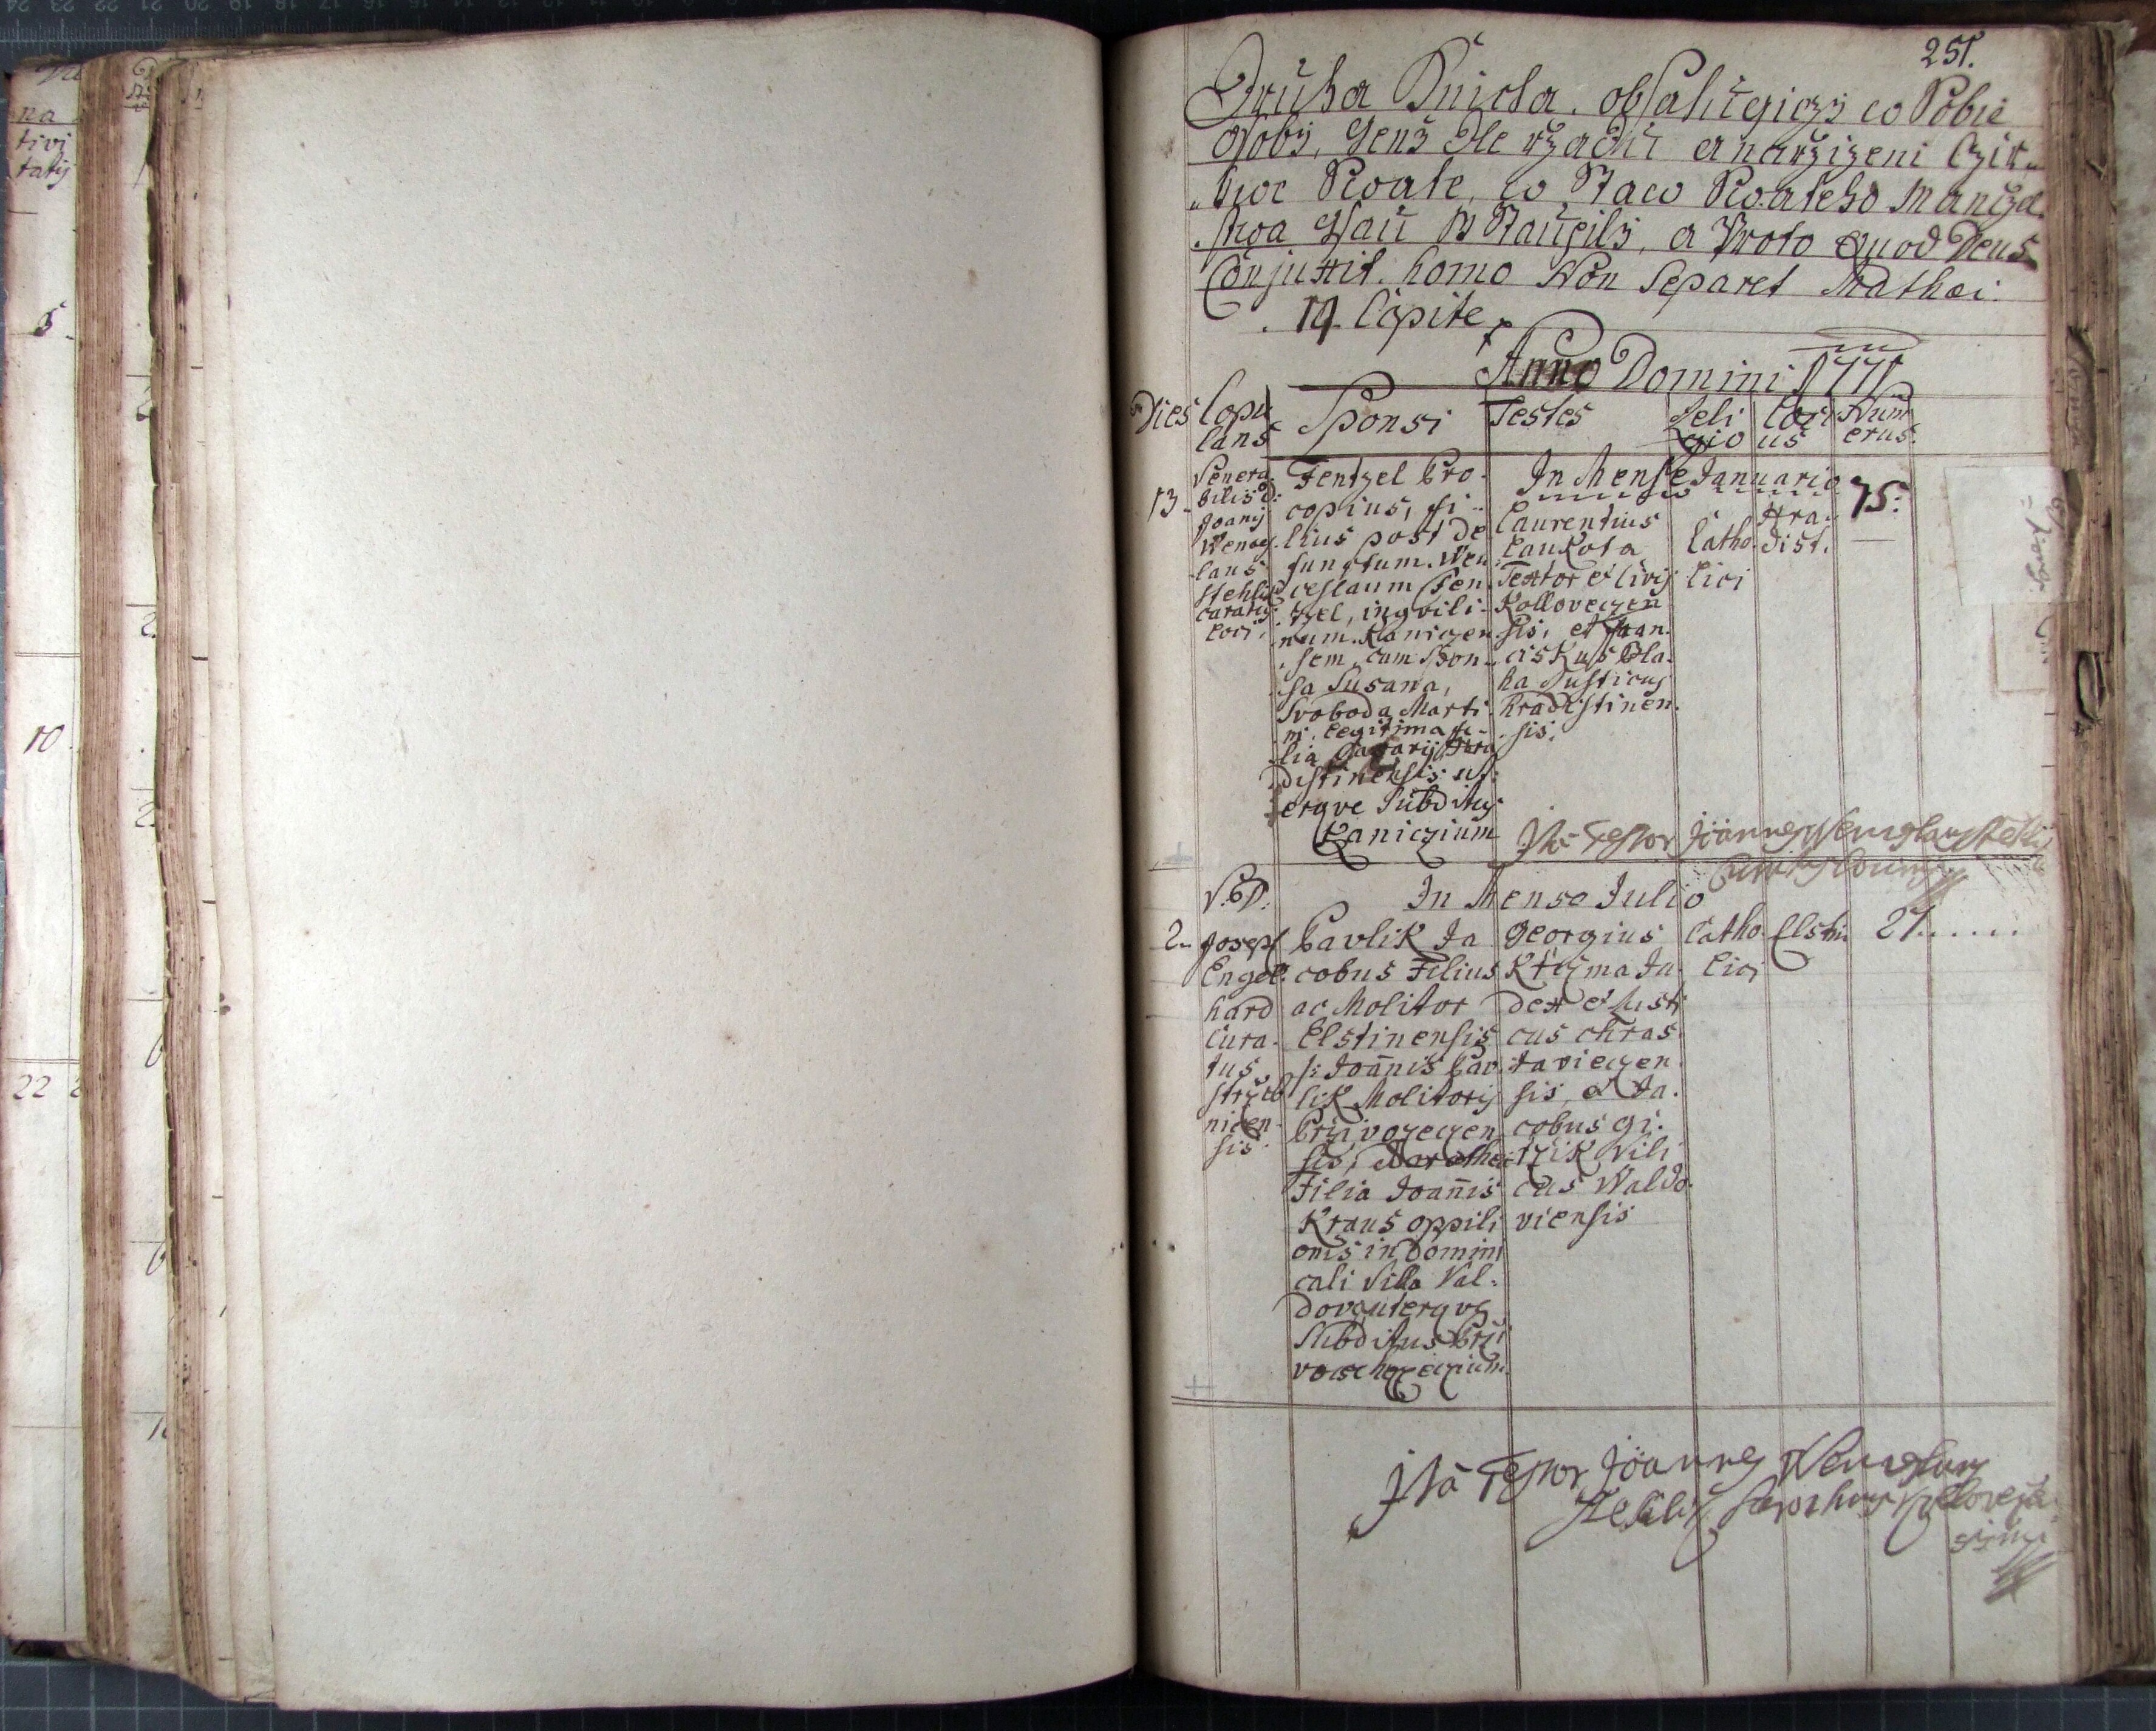 251.
Druha Knicha. obsahugiczy w Sobie
osoby, genž dle rzadu a narzizeni Czir-
kwe Swate, w Staw Swateho Manžel-
stwa gsau wstaupily, a Proto Quod Deus
Conjunxit. homo Non Separet Mathæi.
19. Capite.
Anno Domini 1771
Dies
Copu
lans
Sponsi
Testes
Reli
gio
Loci
us
Num
erus.
In Mense Januario
13.
Venera-
bilis D:
Joanes
Wences-
laus
Stehlik
curatus
loci,
Fentzel Pro-
copius, fi-
lius post de
functum. Wen
ceslaum Fen
tzel, inqvili-
num. Kaniczen-
sem, cum Spon-
sa Susana,
Svoboda Marti-
ni, legitima fi-
lia
distinensis ut-
erqve Subditus
Kaniczium
Laurentius
Laukota
Textor et Civis
Kolloveczen
sis, et Fran-
ciskus Bla-
ha Rusticus
hradistinen-
sis.
Catho-
lici
Hra-
dist.
75.
Ita Testor Joannes Wenceslaus Stehlik
Curatus
In Mense Julio
2.
V. P. D.
Joseph
Engel-
hard
Cura-
tus
nicen-
sis.
Pavlik Ja
cobus Filius
ac Molitor
Elstinensis
s: Joannis Pav
lik Molitoris
sis,
Filia Joannis
Kraus oppili
onis in Domini
cali Villa Val-
dova uterqve
Subditus
Georgius
Ktizma Ju-
dex et Rusti
cus Chras-
taviczen-
sis, et Ja-
cobus Gi-
rzik Vili
cus Waldo-
viensis
Catho-
lici
Elstin.
21......
Ita Testor Joannes Wenceslaus
Stehlik